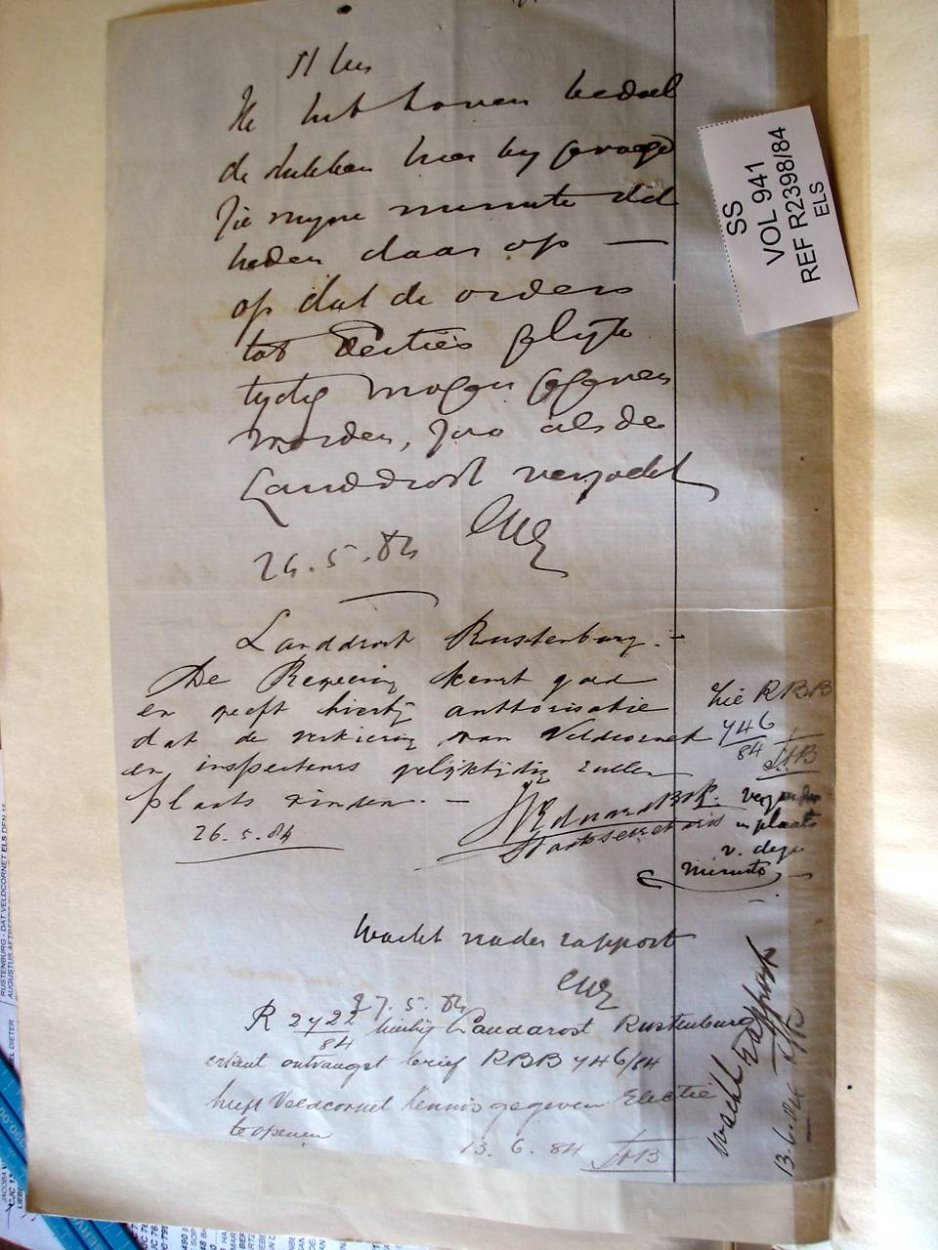 Ik heb boven bedoel
de stukken hier by gevoegd
Zie myne minute dd
heden daar op —
op dat de orders
tot
tydig mogen gegeven
worden, zoo als de
Landdrost verzoekt
26.5.84
Landdrost Rustenburg. -
De Regeering keurt goed
en geeft hierbij authorisatie
dat de verkiezing van Veldcornet
en inspecteurs gelijktijdig zullen
plaats vinden. —
26.5.84
Staatssecretaris
Zie RBB
746/84
JvB
verzonden
in plaats
v. deze
minute
Wacht nader rapport
27.5.84
R 2722/84 hierbij Landdrost Rustenburg
erkent ontvangst brief RBB 746/84
heeft Veldcornet kennis gegeven Electie
te openen
13.6.84 JvB
Wacht Rapport
13.6.84
SS
VOL 941
REF R2398/84
ELS
RUSTENBURG - DAT VELDCORNET ELS DEN